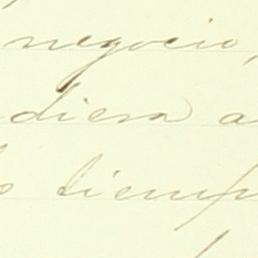 negocio,
diera a
o tiemp